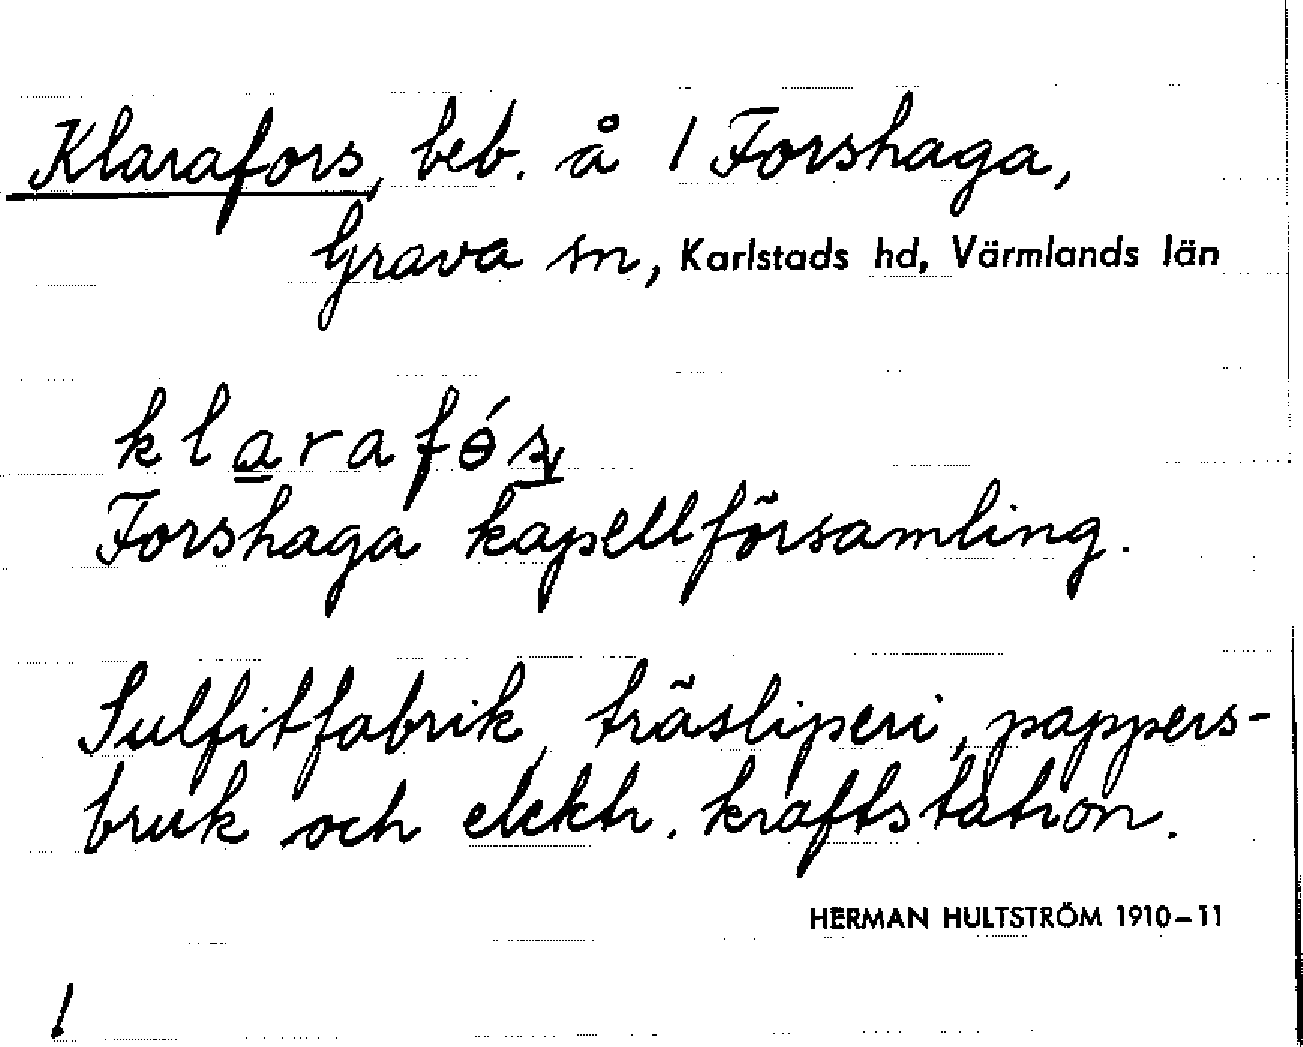 Klarafors, beb. å 1 Forshaga,
Grava sn, Karlstads hd, Värmlands län
Forshaga kapellförsamling.
Sulfitfabrik, träsliperi, pappers-
bruk och elektr. kraftstation.
HERMAN HULTSTRÖM 1910–11